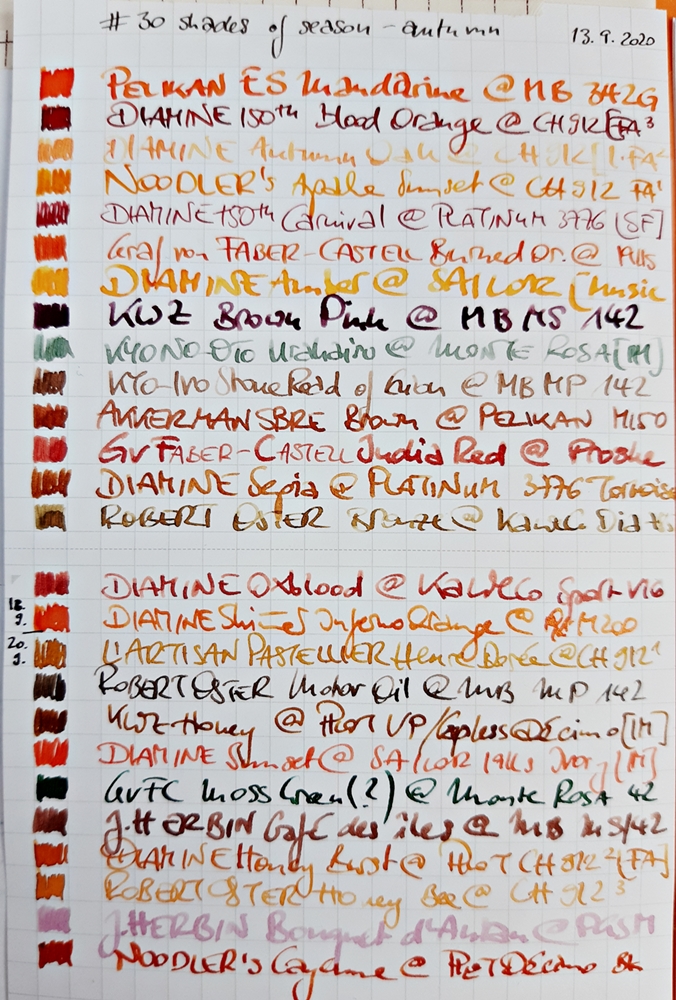 # 30 shades of season - autumn 13.9.2020
PELIKAN ES Mandarine @ MB 342G
DIAMINE 150th Blood Orange @ CH912 [FA³
DIAMINE Autumn Oak @ CH 912 [1.FA²
NOODLER's Apache Sunset @ CH 912 FA¹
DIAMINE 150th Carnival @ PLATINUM 3776 [SF]
Graf von FABER-CASTELL Burned Or. @
DIAMINE Amber @ SAILOR [Music
KWZ Brown Pink @ MB MS 142
KYO NO Oto @ MONTE ROSA [M]
KYO-Ino Stone Road of Gion @ MB MP 142
AKKERMAN SBRE Brown @ PELIKAN M150
GvFABER-CASTELL India Red @
DIAMINE Sepia @ PLATINUM 3776 Tortoise
ROBERT OSTER Bronze @ Kaweco Dia
DIAMINE Oxblood @ KAWECO Sport V16
18.9. DIAMINE Inferno Orange @ M200
20.9. L'ARTISAN PASTELLIER Heure Dorée @ CH 912¹
ROBERT OSTER Motor Oil @ MB MP 142
KWZ Honey @ PILOT VP/Capless Décimo [M]
DIAMINE Sunset @ SAILOR Ivory [M]
GvFC Moss Green (?) @ Monte Rosa 42
J.HERBIN Café des îles @ MB MS 142
DIAMINE Honey Burst @ PILOT CH 912² [FA]
ROBERT OSTER Honey Bee @ CH 912³
J.HERBIN Bouquet d'Antan @
NOODLER's Cayenne @ PILOT Décimo